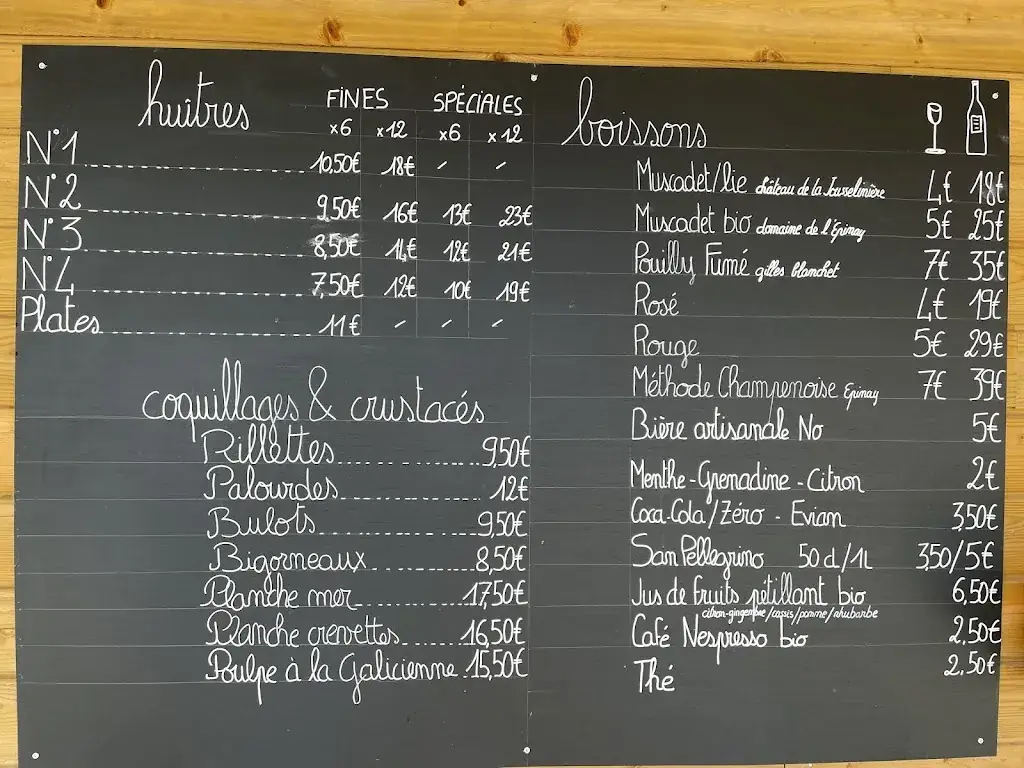 huîtres FINES SPÉCIALES
x6 x12 x6 x12
N°1 10,50€ 18€ - -
N°2 9,50€ 16€ 13€ 23€
N°3 8,50€ 14€ 12€ 21€
N°4 7,50€ 12€ 10€ 19€
Plates 11€ - - -
coquillages & crustacés
Rillettes 9,50€
Palourdes 12€
Bulots 9,50€
Bigorneaux 8,50€
Planche mer 17,50€
Planche crevettes 16,50€
Poulpe à la Galicienne 15,50€
boissons
Muscadet/lie château de la Jousselinière 4€ 18€
Muscadet bio domaine de l'Epinay 5€ 25€
Pouilly Fumé gilles blanchet 7€ 35€
Rosé 4€ 19€
Rouge 5€ 29€
Méthode Champenoise Epinay 7€ 39€
Bière artisanale No 5€
Menthe-Grenadine-Citron 2€
Coca-Cola/Zéro - Evian 350€
San Pellegrino 50 d/1L 3,50/5€
Jus de fruits pétillant bio 6,50€
citron-gingembre/cassis/pomme/rhubarbe
Café Nespresso bio 2,50€
Thé 2,50€